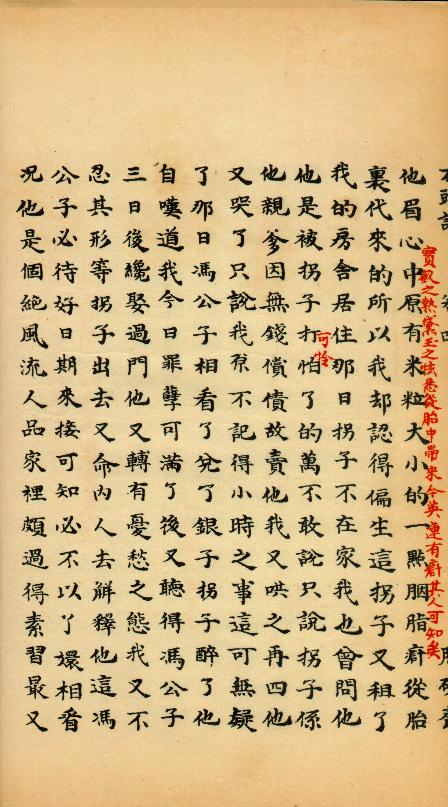 石頭記
他眉心中原有米粒大小的一點胭脂𤵸從胎
寶釵之熱黛玉之怯悉從胎中帶來今英蓮有𤵸其人可知矣
裏代來的所以我却認得偏生這拐子又租了
我的房舍居住那日拐子不在家我也曾問他
他是被拐子打怕了的萬不敢說只說拐子係
可怜
他親爹因無錢償債故賣他我又哄之再四他
又哭了只說我原不記得小時之事這可無疑
了那日馮公子相看了兌了銀子拐子醉了他
自嘆道我今日罪孽可滿了後又聽得馮公子
三日後纔娶過門他又轉有憂愁之態我又不
忍其形等拐子出去又命內人去解釋他這馮
公子必待好日期來接可知必不以丫嬛相看
况他是個絕風流人品家裡頗過得素習最又